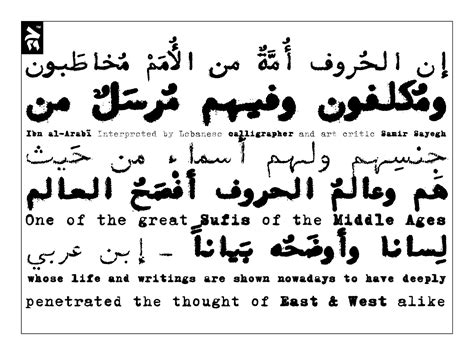 إن الحُروف أُمَّةٌ من الأُمَمْ مُخاطَبون
ومُكلفون وفيهم مُرسَلٌ من
Ibn al-Arabī Interpreted by Lebanese calligrapher and art critic Samir Sayegh
جِنسِهم ولهم أسماء من حَيث
هُم وعالمُ الحروف أفْصَحُ العالم
One of the great Sufis of the Middle Ages
لِسانا وأوضَحُه بَياناً – إبن عربي
whose life and writings are shown nowadays to have deeply
penetrated the thought of East & West alike